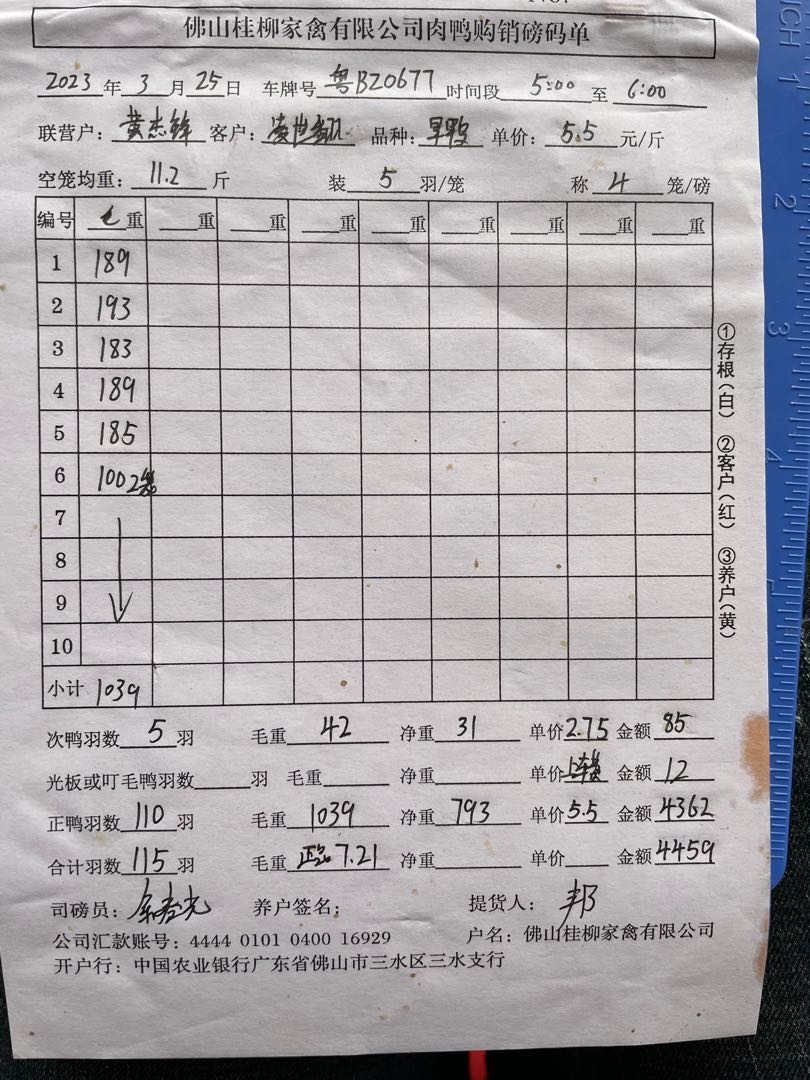 佛山桂柳家禽有限公司肉鸭购销磅码单
2023 年 3 月 25 日 车牌号 粤BZ0677 时间段 5:00 至 6:00
联营户: 黄杰锋 客户: 品种: 旱鸭 单价: 5.5 元/斤
空笼均重: 11.2 斤 装 5 羽/笼 称 4 笼/磅
编号 毛重 重 重 重 重 重 重 重 重
1 189
2 193
3 183
4 189
5 185
6 100 2笼
7
8
9
10
小计 1039
①存根(白) ②客户(红) ③养户(黄)
次鸭羽数 5 羽 毛重 42 净重 31 单价 2.75 金额 85
光板或叮毛鸭羽数 羽 毛重 净重 单价 金额 12
正鸭羽数 110 羽 毛重 1039 净重 793 单价 5.5 金额 4362
合计羽数 115 羽 毛重 正品 7.21 净重 单价 金额 4459
司磅员: 养户签名: 提货人: 邦
公司汇款账号: 4444 0101 0400 16929 户名: 佛山桂柳家禽有限公司
开户行: 中国农业银行广东省佛山市三水区三水支行
INCH 1
2
3
4
5